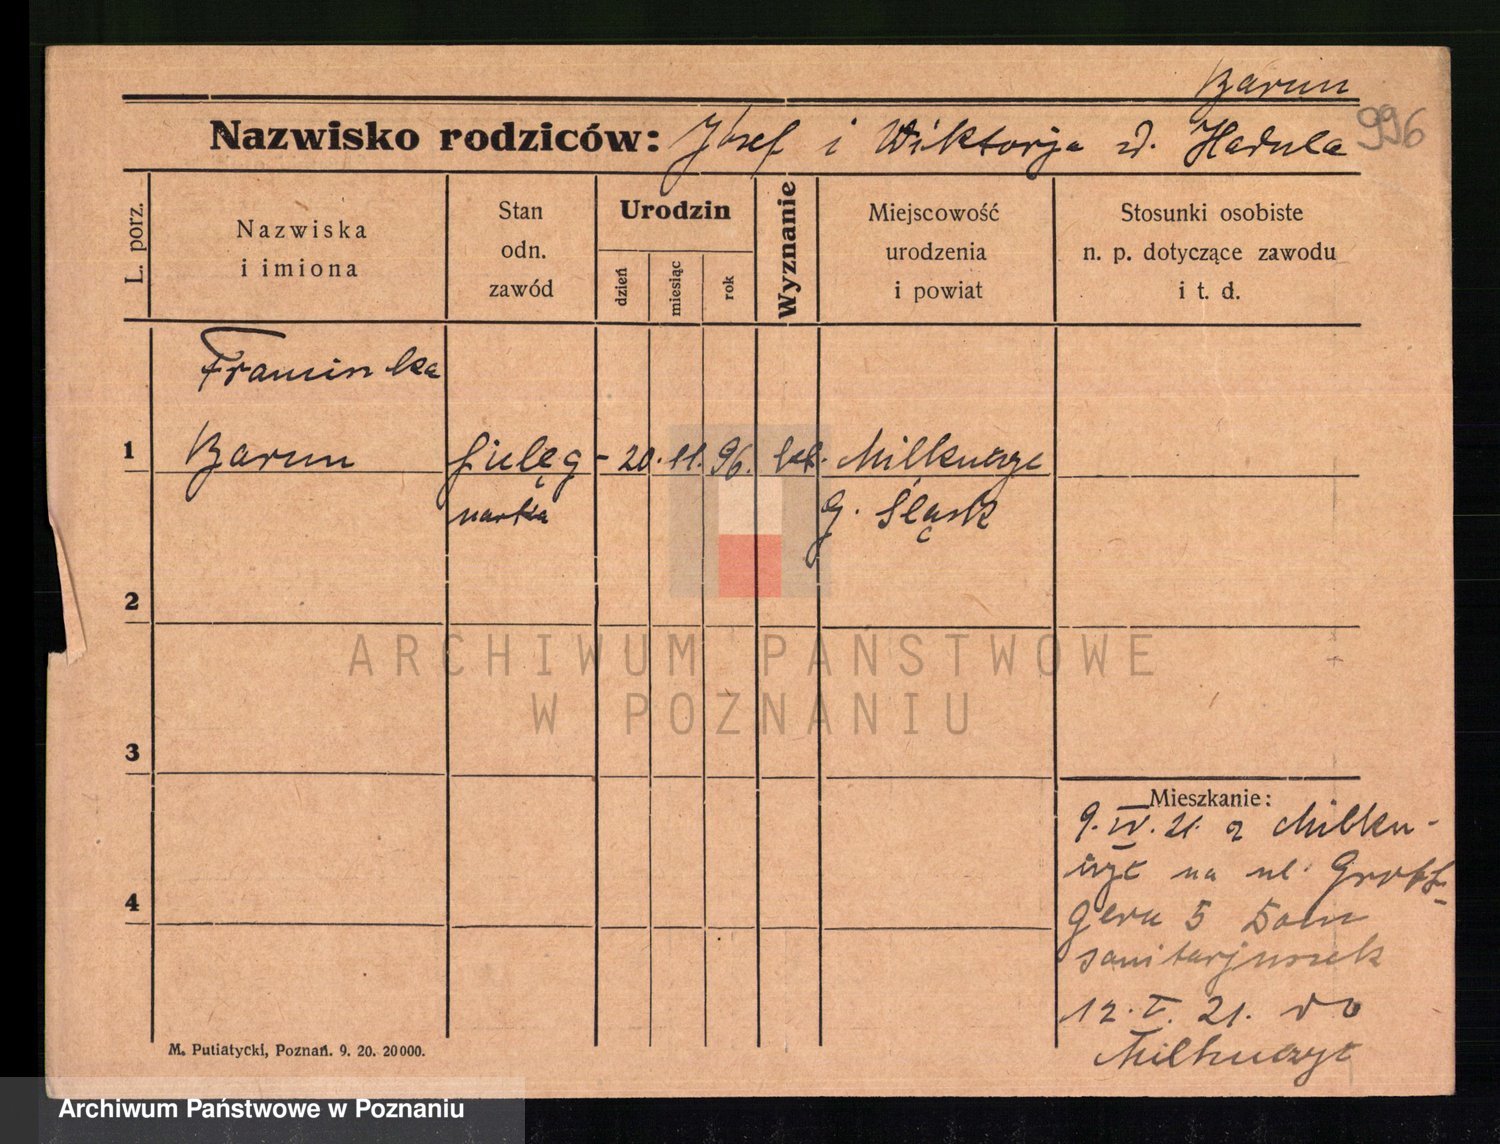 Barun
Nazwisko rodziców: Józef i Wiktorja d. Hadula 996
L. porz.
Nazwiska
i imiona
Stan
odn.
zawód
Urodzin
dzień
miesiąc
rok
Wyznanie
Miejscowość
urodzenia
i powiat
Stosunki osobiste
n. p. dotyczące zawodu
i t. d.
Franciszka
1 Barun pielęg- 20. 11. 96. kat. Mikulczyc
niarka G. Śląsk
2
3
4
Mieszkanie:
9. IV. 21. z Mikul-
czyc na ul. Grott-
gera 5 Dom
sanitarjuszek
12. V. 21. do
Mikulczyc
M. Putiatycki, Poznań. 9. 20. 20000.
ARCHIWUM PAŃSTWOWE
W POZNANIU
Archiwum Państwowe w Poznaniu